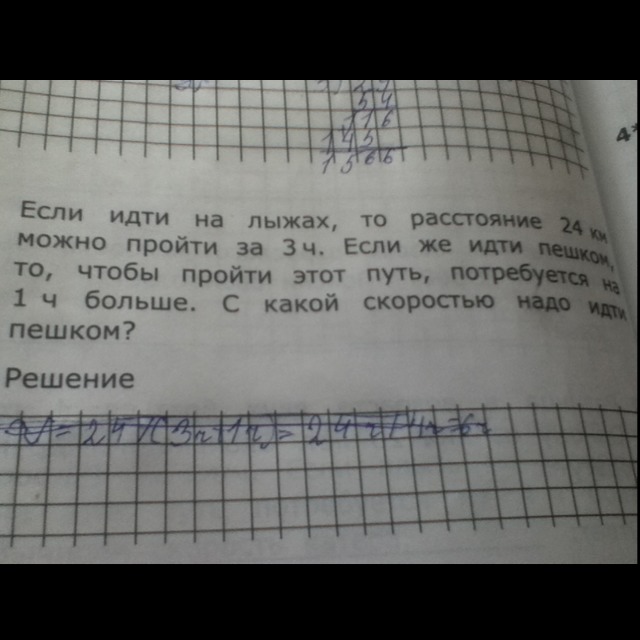 1566
4*
Если идти на лыжах, то расстояние 24 км
можно пройти за 3 ч. Если же идти пешком,
то, чтобы пройти этот путь, потребуется на
1 ч больше. С какой скоростью надо идти
пешком?
Решение